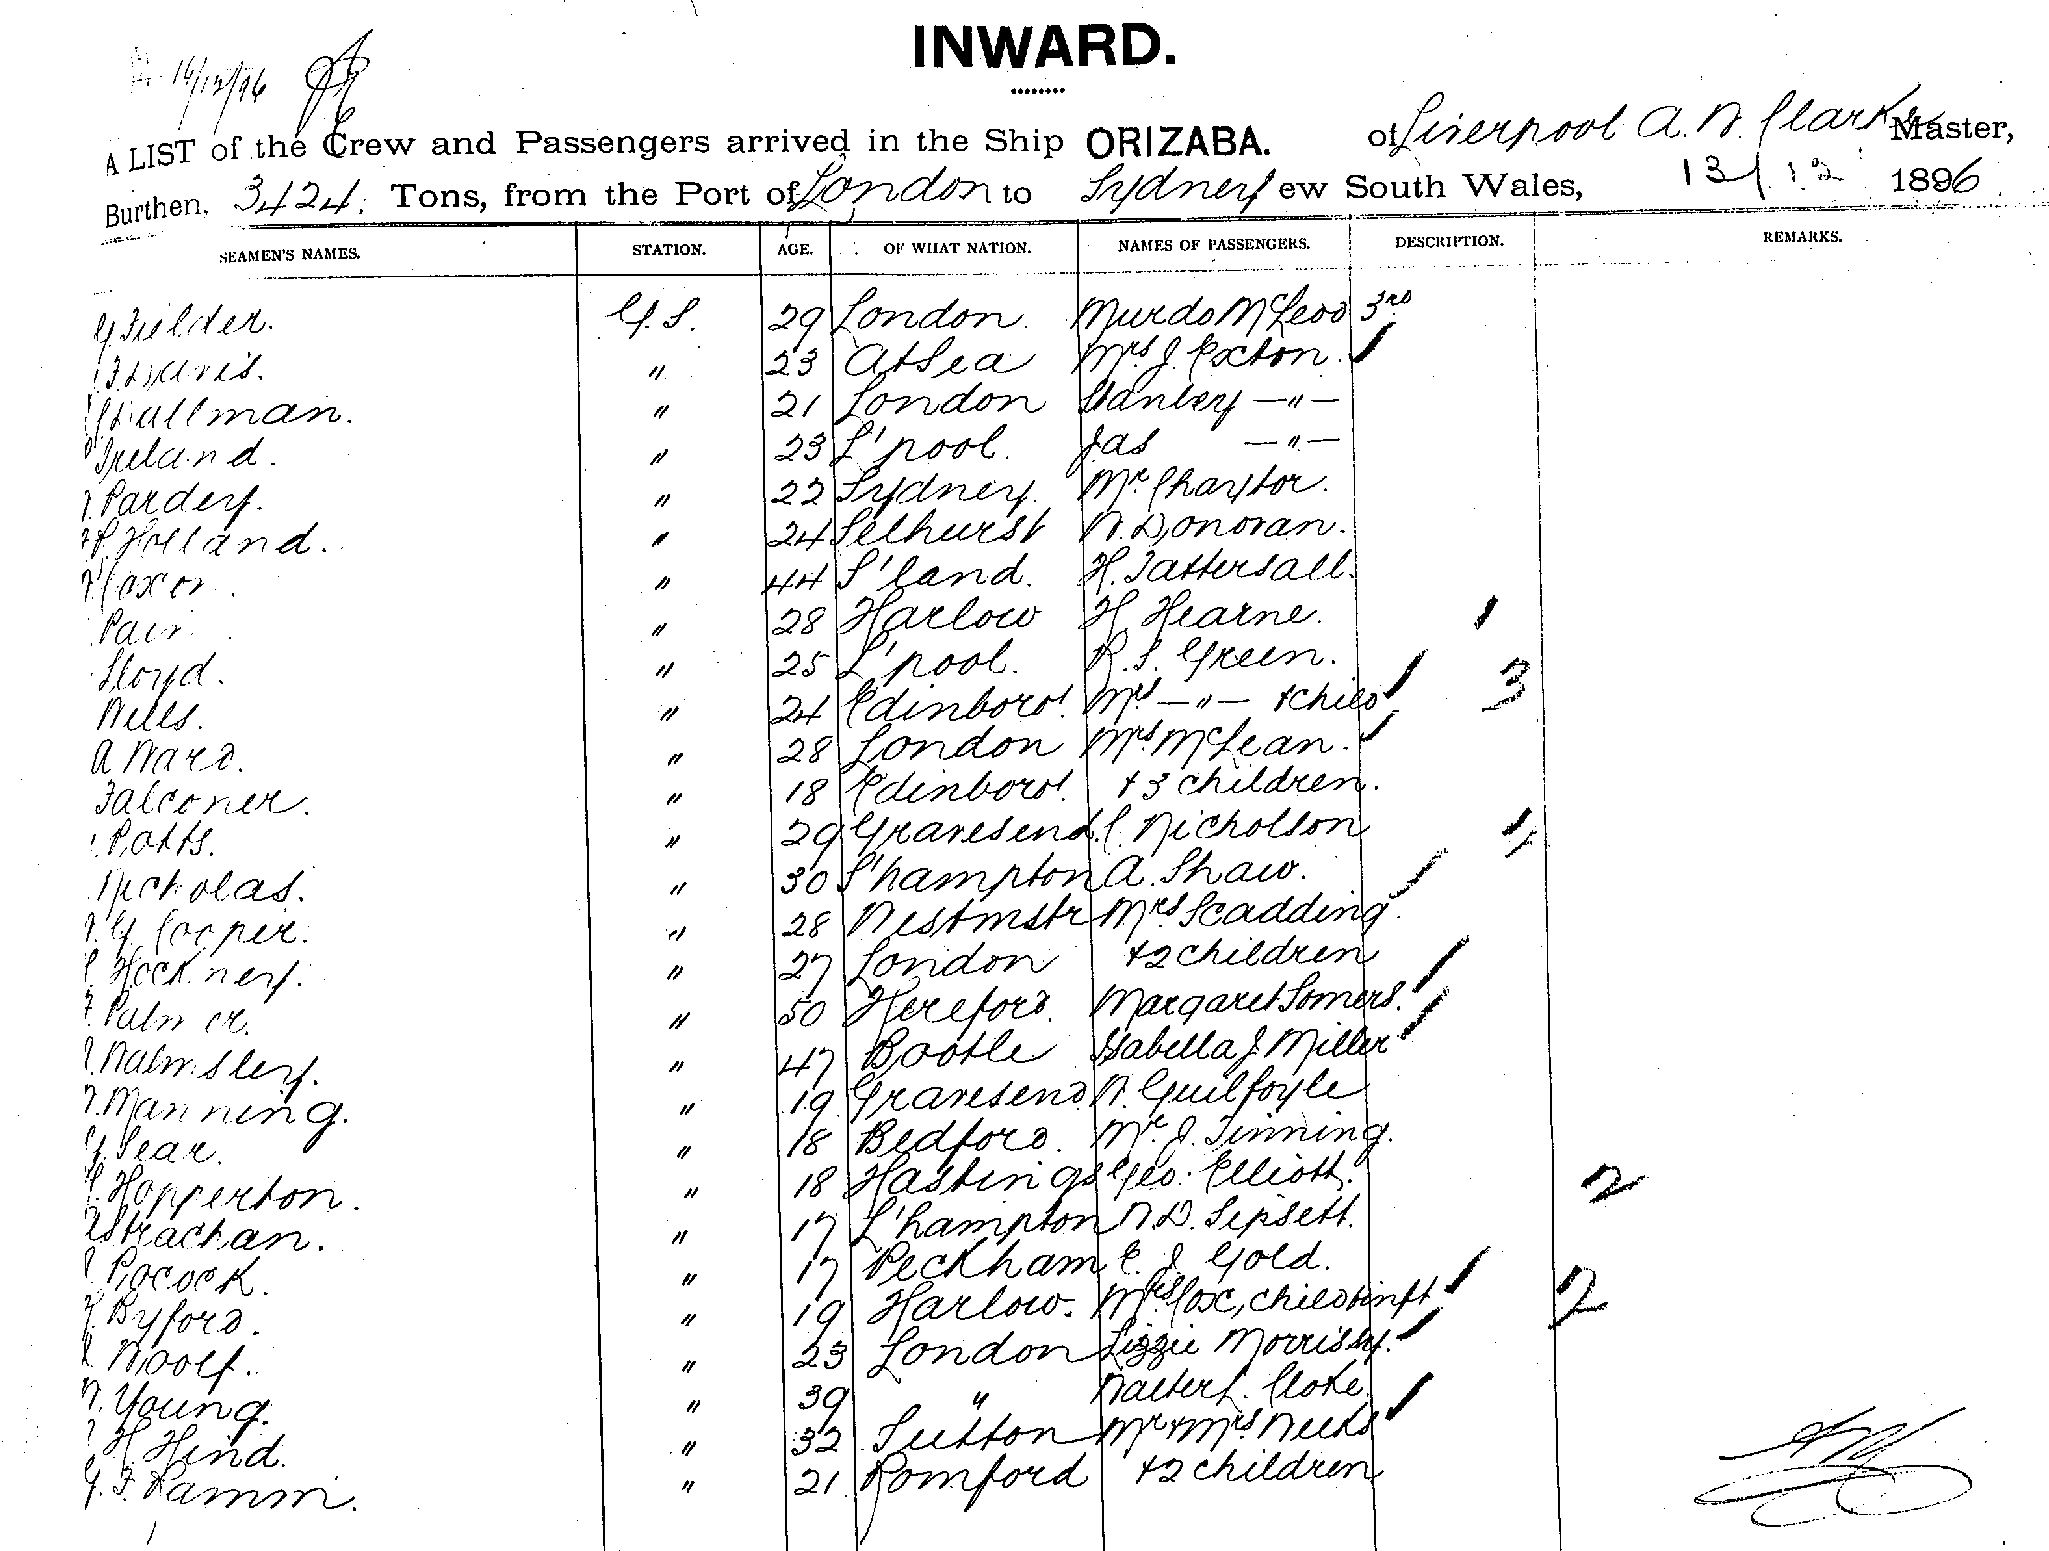 16/12/96
INWARD.
A LIST of the Crew and Passengers arrived in the Ship ORIZABA. of Liverpool A. W. Clarke Master,
Burthen, 3424 Tons, from the Port of London to Sydney ew South Wales, 13/12 1896
SEAMEN'S NAMES. STATION. AGE. OF WHAT NATION. NAMES OF PASSENGERS. DESCRIPTION. REMARKS.
G. Fielder. G.S. 29 London. Murdo McLeod 3rd
Davis. " 23 At Sea Mrs J. Exton.
Hullman. " 21 London Stanley —"—
Ireland. " 23 L'pool. Jas —"—
Pardey. " 22 Sydney. Mr Chaytor.
Holland. " 24 Selhurst W. Donovan.
Coxon " 44 S'land. H. Tattersall.
Pain " 28 Harlow H Hearne. 1
Lloyd. " 25 L'pool. R. S. Green.
Wells. " 24 Edinboro'. Mrs —"— + child 3
A Ward. " 28 London Mrs McLean.
Falconer. " 18 Edinboro'. + 3 children.
Potts. " 29 Gravesend. C Nicholson 4
Nicholas. " 30 S'hampton A. Shaw.
G. Cooper. " 28 Westmstr Mrs Scadding.
Hockney. " 27 London + 2 children
Palmer. " 50 Hereford. Margaret Somers.
Walmsley. " 47 Bootle Isabella J Miller
Manning. " 19 Gravesend. W. Guilfoyle
G. Sear. " 18 Bedford. Mr. J. Tinning.
Hopperton. " 18 Hastings Geo. Elliott. 2
Strachan. " 17 L'hampton W. D. Lipsett.
Pocock. " 17 Peckham E. J. Gold.
Byford. " 19 Harlow. Mrs Cox, child & inft 2
Woolf. " 23 London Lizzie Morrissy.
Young. " 39 " Walter L. Cloke
H Hind. " 32 Sutton Mr & Mrs Weeks
G. F. Ramm. " 21 Romford + 2 children